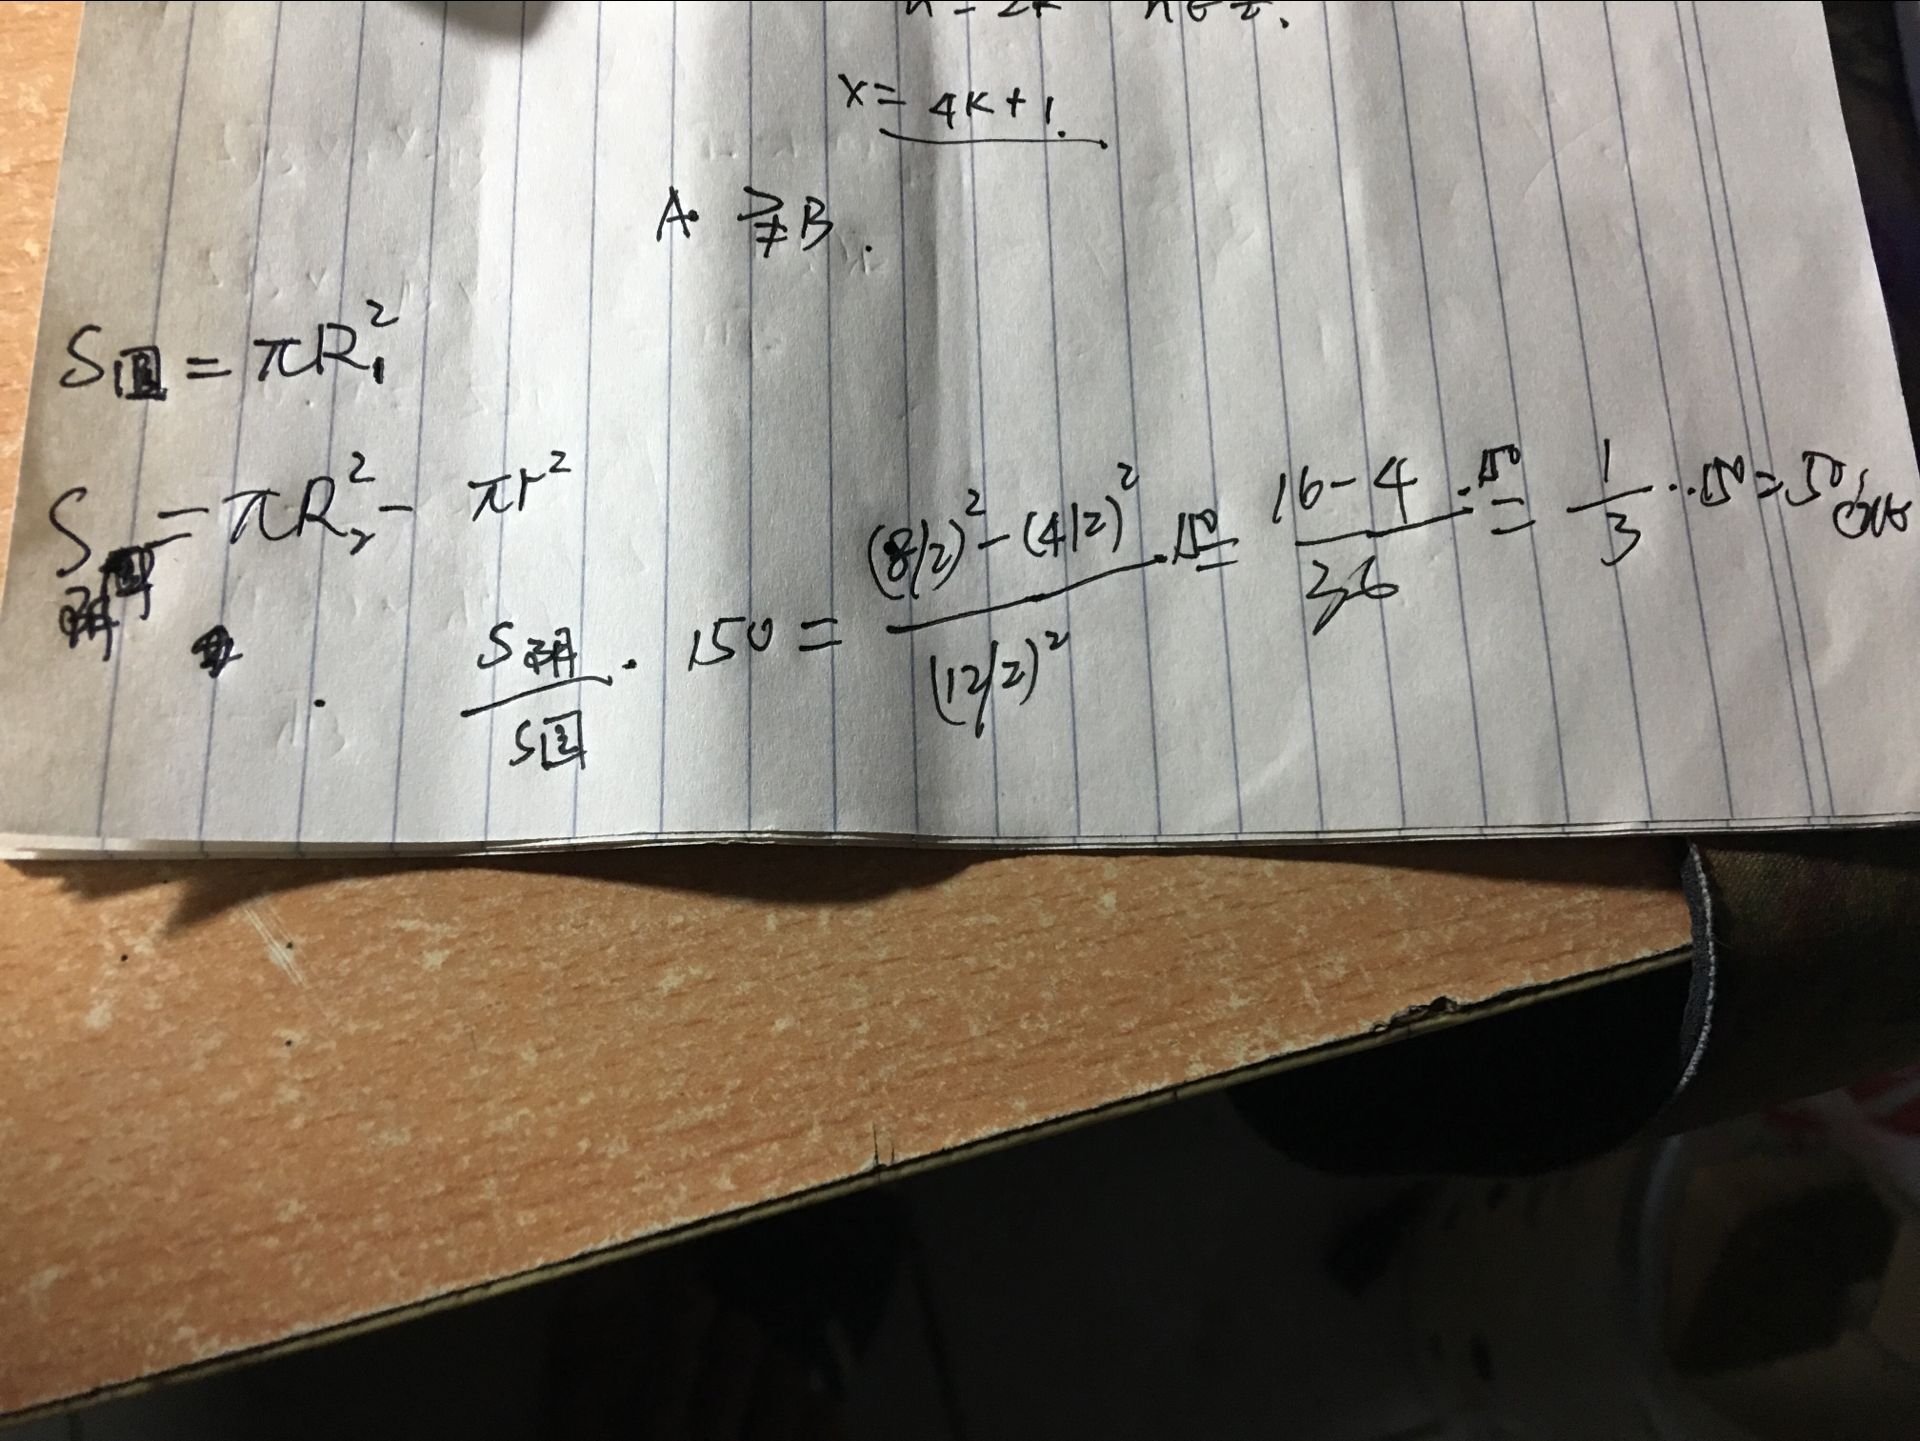 n = 2k n∈Z.
x = 4k + 1.
A ⫌ B.
S圆 = πR₁²
S阴 = πR₂² - πr²
S阴/S圆 · 150 = ((8/2)² - (4/2)²)/(12/2)² · 150 = (16-4)/36 · 150 = 1/3 · 150 = 50